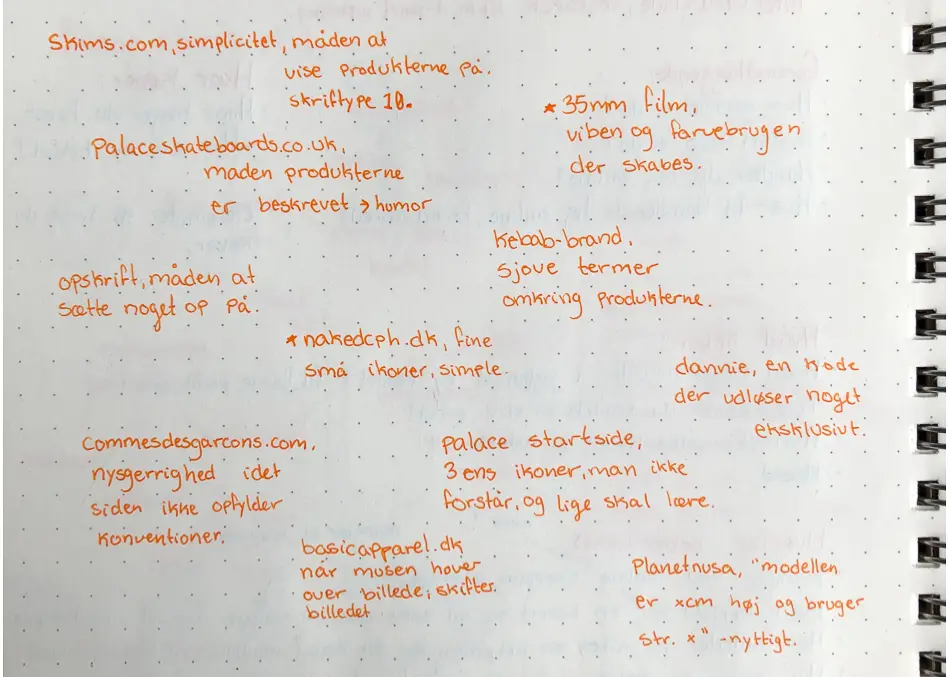 Skims.com, simplicitet, måden at
vise produkterne på.
skriftype 10.
* 35mm film,
viben og farvebrugen
der skabes.
Palaceskateboards.co.uk,
maden produkterne
er beskrevet → humor
kebab-brand,
sjove termer
omkring produkterne.
opskrift, måden at
sætte noget op på.
* nakedcph.dk, fine
små ikoner, simple
dannie, en kode
der udløser noget
eksklusivt.
commesdesgarcons.com,
nysgerrighed idet
siden ikke opfylder
konventioner.
palace startside,
3 ens ikoner, man ikke
forstår, og lige skal lære.
basicapparel.dk
når musen hover
over billede, skifter
billedet
Planetnusa, "modellen
er xcm høj og bruger
str. x" -nyttigt.